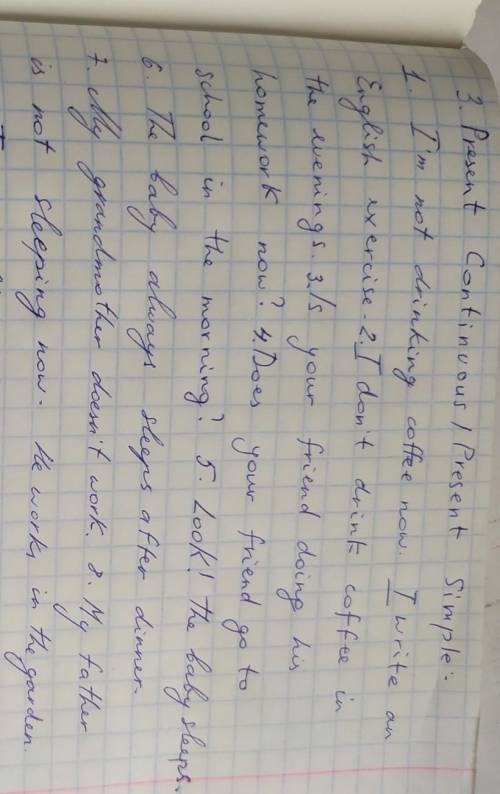 3. Present Continuous / Present Simple:
1. I'm not drinking coffee now. I write an
English exercise. 2. I don't drink coffee in
the evenings. 3. Is your friend doing his
homework now? 4. Does your friend go to
school in the morning? 5. Look! The baby sleeps.
6. The baby always sleeps after dinner.
7. My grandmother doesn't work. 8. My father
is not sleeping now. He works in the garden.